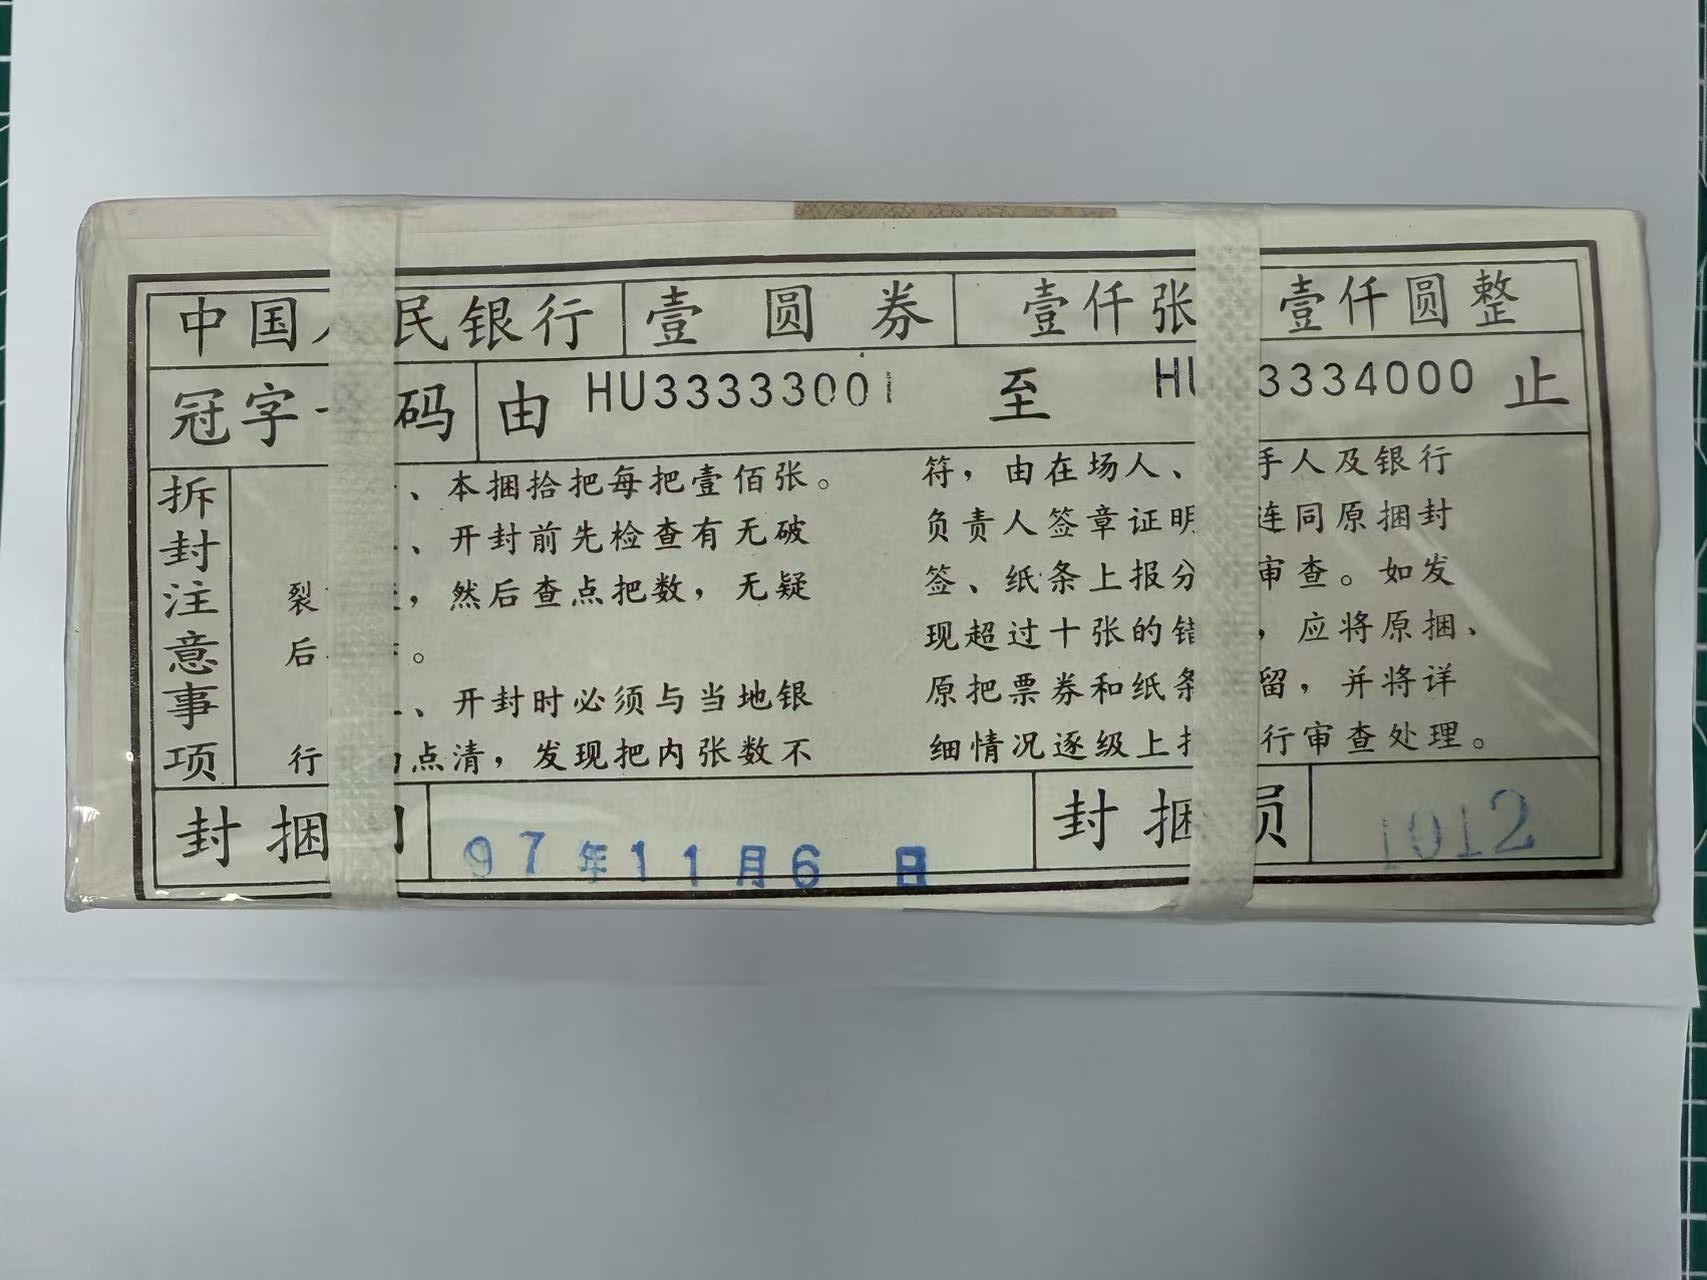 中国 民银行 壹圆券 壹仟张 壹仟圆整
冠字 码 由 HU33333001 至 H 3334000 止
拆封注意事项
、本捆拾把每把壹佰张。
、开封前先检查有无破
裂 ，然后查点把数，无疑
后 。
、开封时必须与当地银
行 点清，发现把内张数不
符，由在场人、 手人及银行
负责人签章证明 连同原捆封
签、纸条上报分 审查。如发
现超过十张的错 ，应将原捆、
原把票券和纸条 留，并将详
细情况逐级上报 行审查处理。
封捆 97年11月6日 封捆员 1012